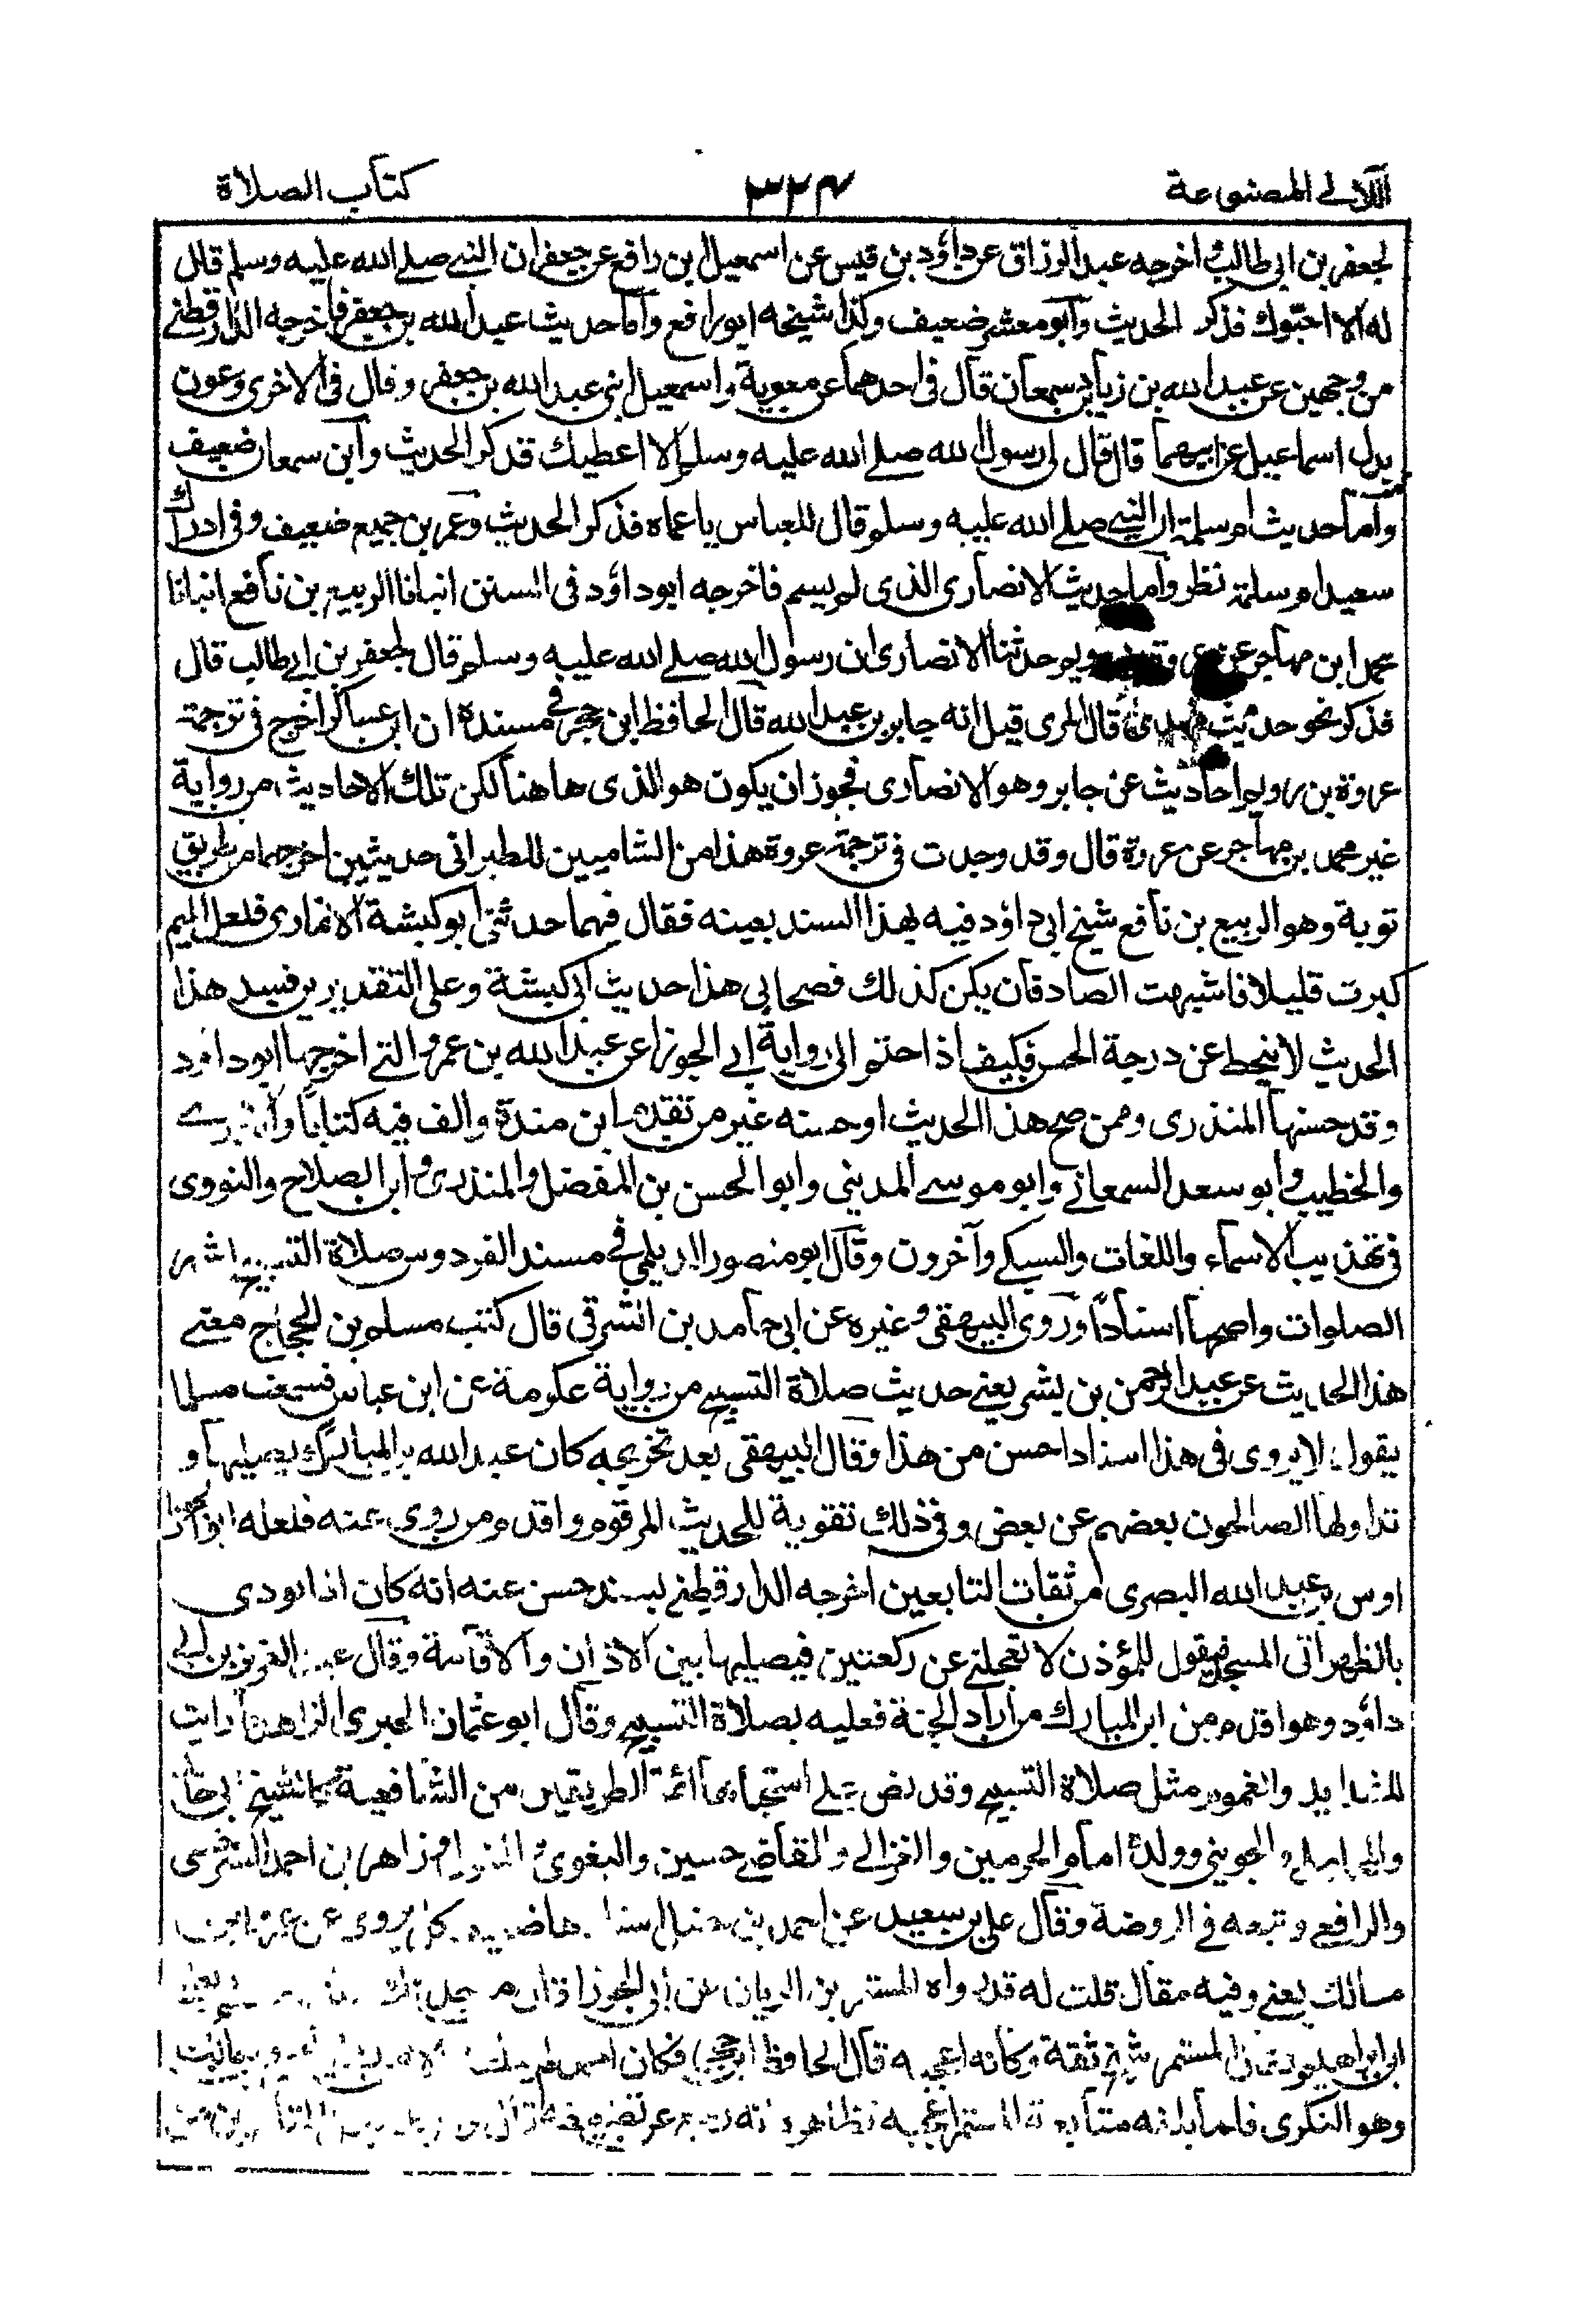 اللآلى المصنوعة
٣٢٤
كتاب الصلاة
لجعفر بن ابى طالب اخرجه عبد الرزاق عن داؤد بن قيس عن اسمعيل ابن رافع عن جعفر ان النبى صلى الله عليه وسلم قال
له الا احبوك فذكر الحديث وابو معشر ضعيف وكذا شيخه ابو رافع واما حديث عبد الله بن جعفر فاخرجه الدارقطنى
من وجهين عن عبد الله بن زياد بن سمعان قال فى احدهما عن معوية واسمعيل ابنى عبد الله بن جعفر وقال فى الاخرى وعون
بدل اسماعيل عن ابيهما قال قال لى رسول الله صلى الله عليه وسلم الا اعطيك فذكر الحديث وابن سمعان ضعيف
واما حديث ام سلمة ان النبى صلى الله عليه وسلم قال للعباس يا عماه فذكر الحديث وعمر بن جميع ضعيف وفى ادراك
سعيد ام سلمة نظر واما حديث الانصارى الذى لم يسم فاخرجه ابو داؤد فى السنن انبانا الربيع بن نافع انبانا
محمد ابن مهاجر عن عروة بن رويم حدثنا الانصارى ان رسول الله صلى الله عليه وسلم قال لجعفر بن ابى طالب قال
فذكر نحو حديث قال المزى قيل انه جابر بن عبد الله قال الحافظ ابن حجر فى مسنده ان ابن عساكر اخرج فى ترجمة
عروة بن رويم احاديث عن جابر وهو الانصارى فجوز ان يكون هو الذى ها هنا لكن تلك الاحاديث من رواية
غير محمد بن مهاجر عن عروة قال وقد وجدت فى ترجمة عروة هذا من الشاميين للطبرانى حديثين اخرجهما من طريق
توبة وهو الربيع بن نافع شيخ ابى داؤد فيه بهذا السند بعينه فقال فهما حدثنى ابو كبشة الانمارى فلعل الميم
كبرت قليلا فاشبهت الصاد فان يكن كذلك فصحابى هذا حديث ابى كبشة وعلى التقديرين فسند هذا
الحديث لا ينحط عن درجة الحسن فكيف اذا ختم الى رواية ابى الجوزاء عن عبد الله بن عمرو التى اخرجها ابو داؤد
وقد حسنها المنذرى وممن صحح هذا الحديث او حسنه غير من تقدم ابن مندة والف فيه كتابا
والخطيب وابو سعد السمعانى وابو موسى المدينى وابو الحسن بن المفضل والمنذرى وابن الصلاح والنووى
فى تهذيب الاسماء واللغات والسبكى وآخرون وقال ابو منصور الديلمى فى مسند الفردوس صلاة التسبيح اشهر
الصلوات واصحها اسنادا وروى البيهقى وغيره عن ابى حامد بن الشرقى قال كتب مسلم بن الحجاج معنى
هذا الحديث عن عبد الرحمن بن بشر يعنى حديث صلاة التسبيح من رواية عكرمة عن ابن عباس فسمعت مسلما
يقول لا يروى فى هذا اسنادا حسن من هذا وقال البيهقى بعد تخريجه كان عبد الله بن المبارك يصليها و
تداولها الصالحون بعضهم عن بعض وفى ذلك تقوية للحديث المرقوم واقدم من روى عنه فلعله ابو الجوزاء
اوس بن عبد الله البصرى من ثقات التابعين اخرجه الدارقطنى بسند حسن عنه انه كان اذا نودى
بالظهر اتى المسجد فيقول للمؤذن لا تعجلنى عن ركعتين فيصليها بين الاذان والاقامة وقال عبد العزيز بن ابى
داؤد وهو اقدم من ابن المبارك من اراد الجنة فعليه بصلاة التسبيح وقال ابو عثمان الحيرى الزاهد ما رايت
للشدايد والغموم مثل صلاة التسبيح وقد نص على استحبابها ائمة الطريقين من الشافعية كالشيخ ابى حامد
والمحاملى والجوينى وولده امام الحرمين والغزالى والقاضى حسين والبغوى والمتولى وزاهر بن احمد السرخسى
والرافعى وتبعه فى الروضة وقال على بن سعيد عن احمد بن حنبل اسنادها ضعيف كل يروى عن عمرو بن
مالك يعنى وفيه مقال قلت له قد رواه المستمر بن الريان عن ابى الجوزاء قال من حدثك
ابن ابراهيم فقال المستمر شيخ ثقة وكانه اعجبه قال الحافظ ابن حجر فكان احمد لم يبلغه
وهو النكرى فلما بلغه متابعة المستمر اعجبه فظاهره انه رجع عن تضعيفه